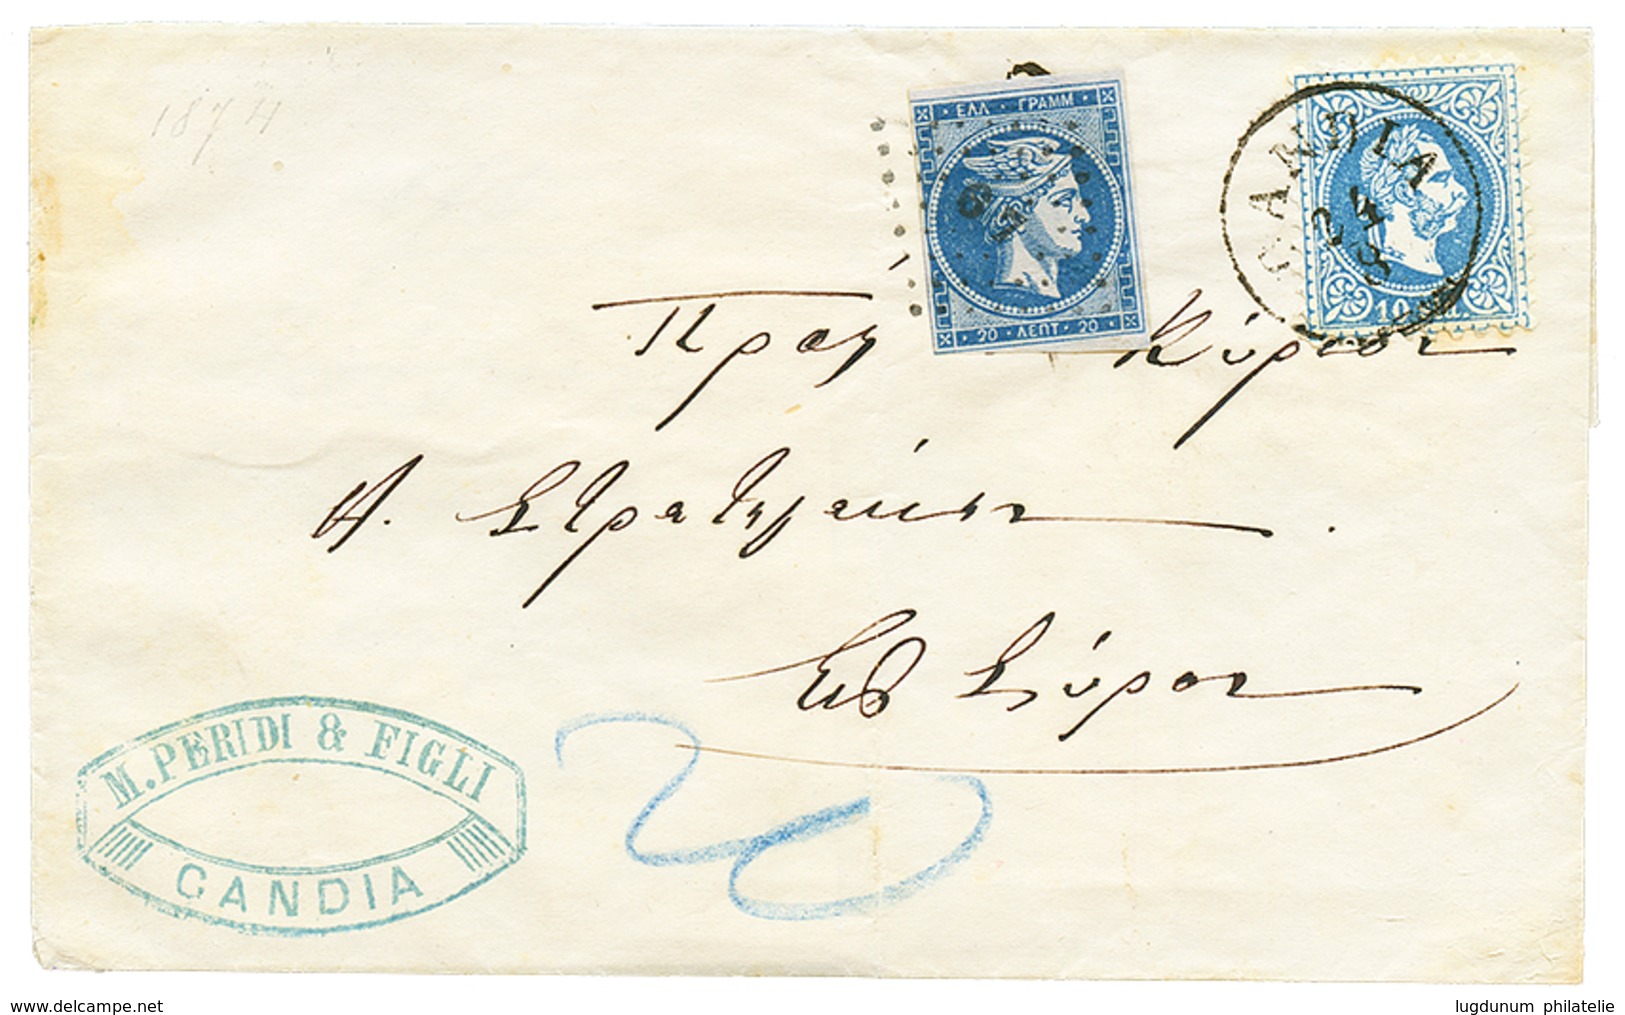 1874
ΕΛΛ · ΓΡΑΜΜ
20 · ΛΕΠΤ · 20
CANDIA
24
8
Κύριον
Α. Στρατηγάκην
Εἰς Σύρον
M. PERIDI & FIGLI
CANDIA
20
delcampe.net
lugdunum philatelie